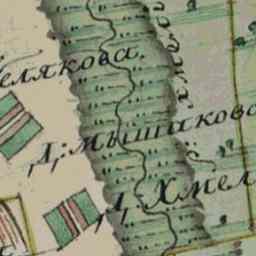 елякова.
Д: Мышакова
Д: Хмел